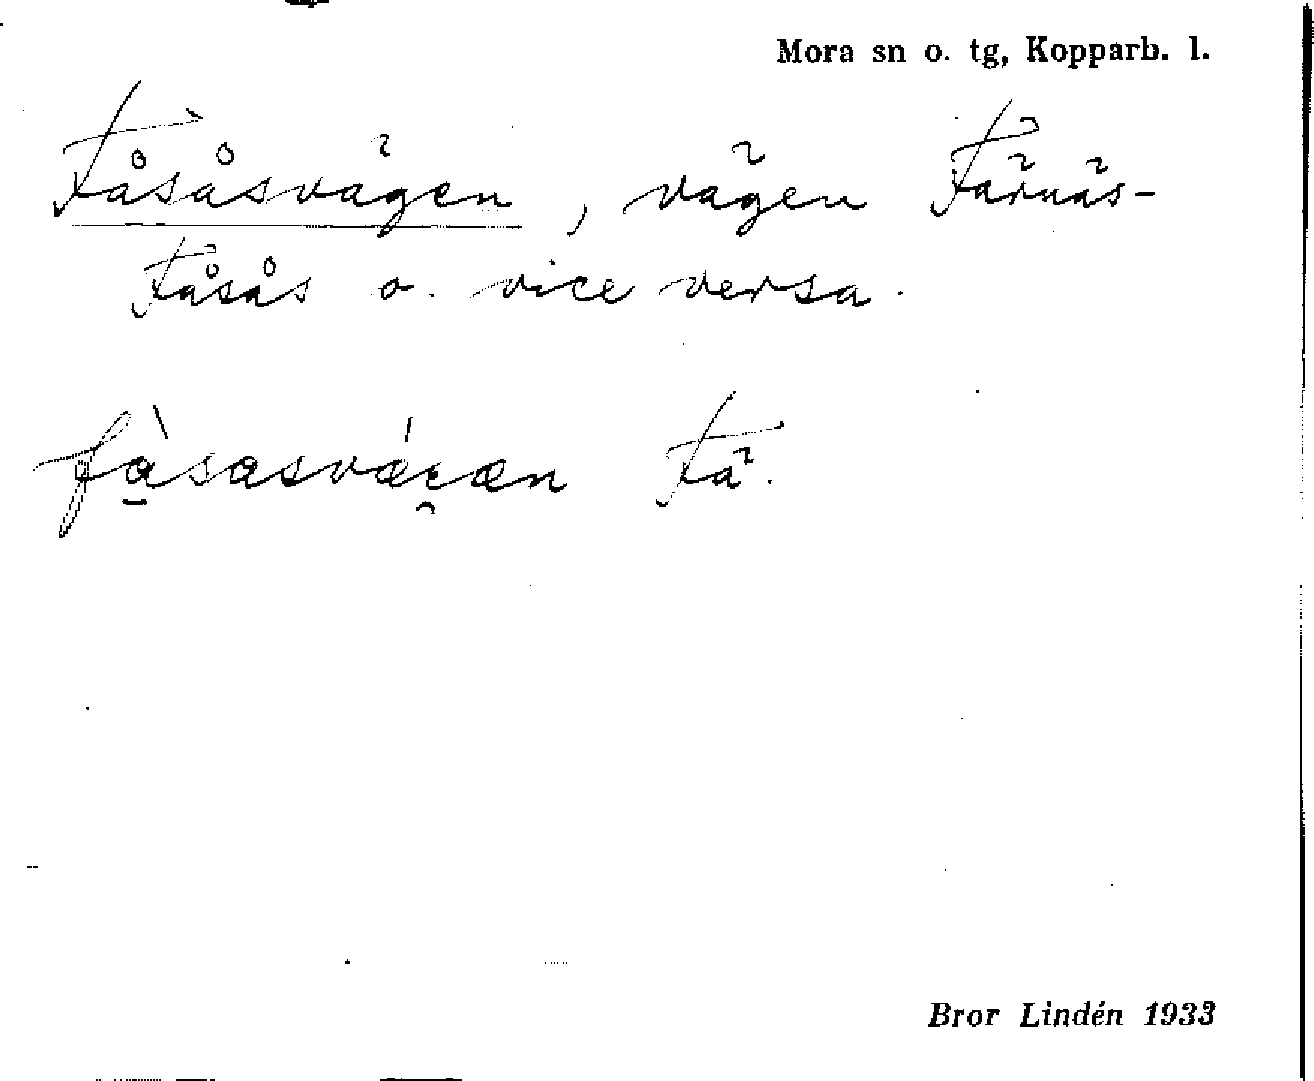 Mora sn o. tg, Kopparb. l.
Fåsåsvägen, vägen Färnäs-
Fåsås o. vice versa.
Fä.
Bror Lindén 1933